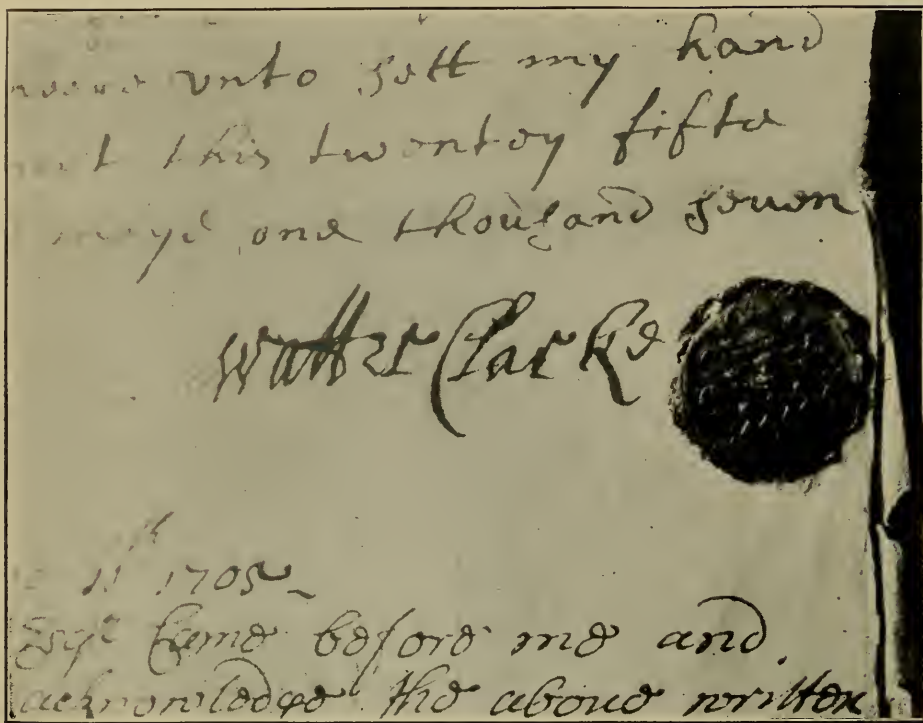 unto sett my hand
this twentey fifte
one thousand seuen
Walter Clarke
11th 1705
Esqr Came before me and
acknowledge the aboue written